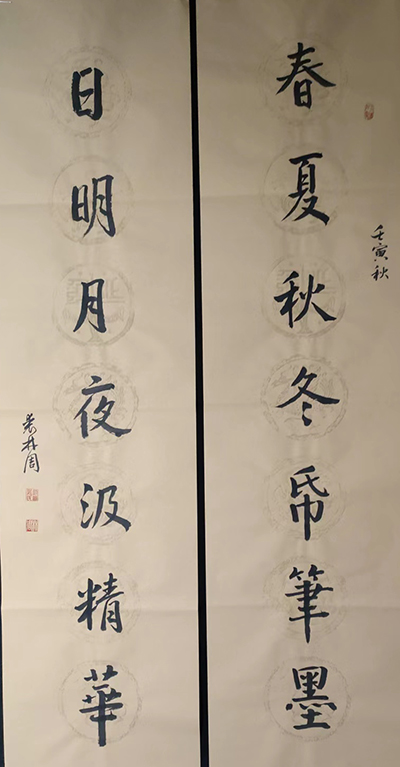 春夏秋冬帋筆墨
壬寅秋
日明月夜汲精華